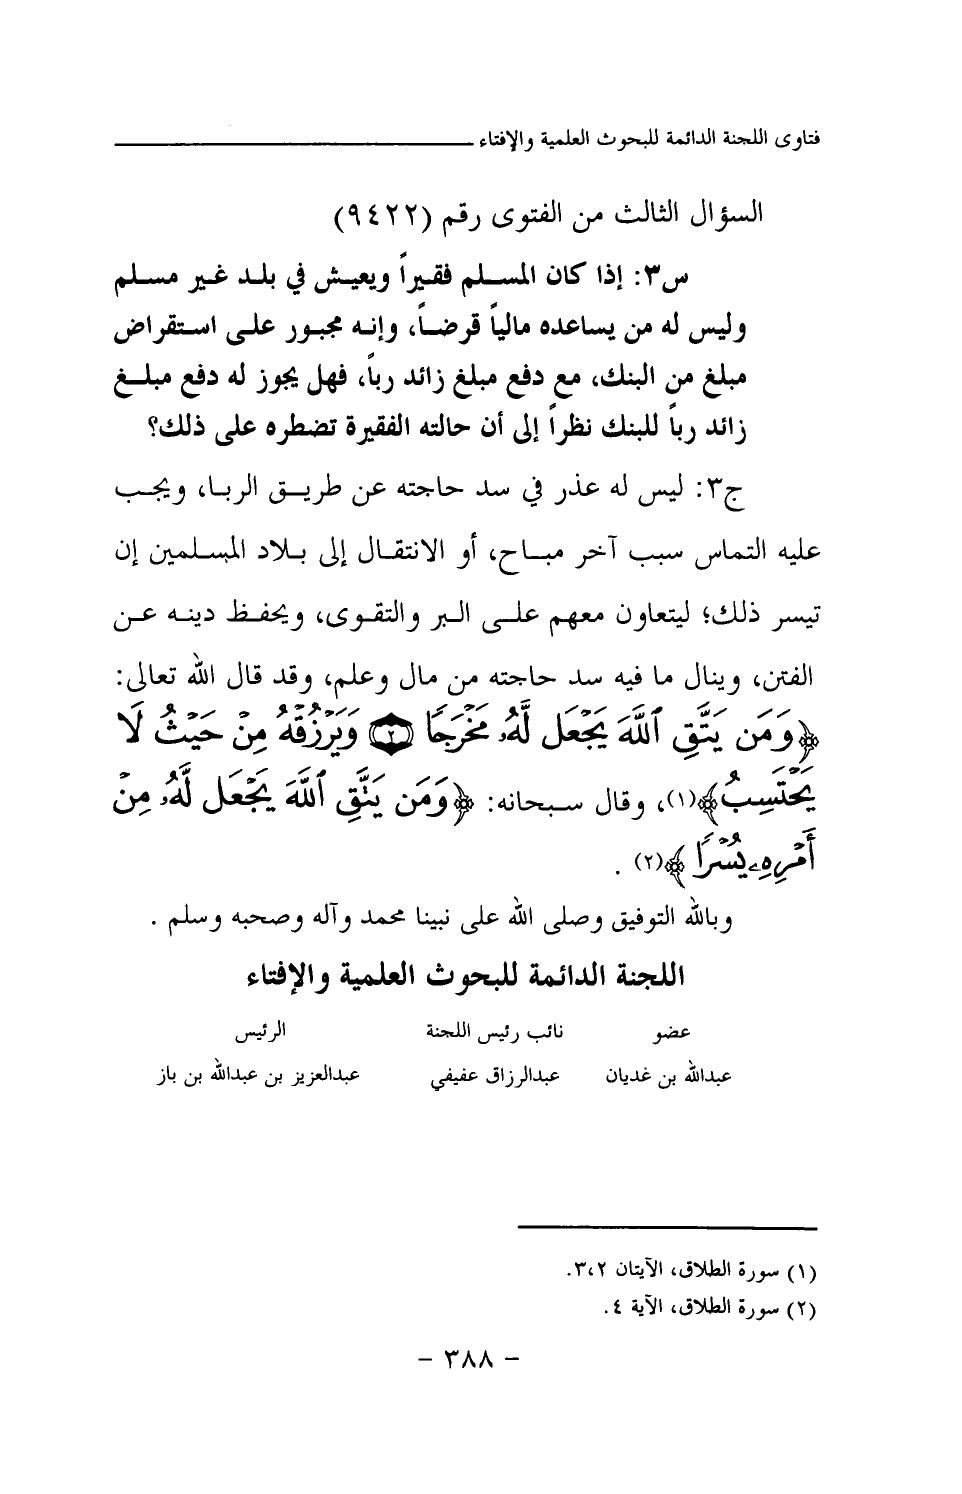 فتاوى اللجنة الدائمة للبحوث العلمية والإفتاء
السؤال الثالث من الفتوى رقم (٩٤٢٢)
س٣: إذا كان المسلم فقيراً ويعيش في بلد غير مسلم
وليس له من يساعده مالياً قرضاً، وإنه مجبور على استقراض
مبلغ من البنك، مع دفع مبلغ زائد رباً، فهل يجوز له دفع مبلغ
زائد رباً للبنك نظراً إلى أن حالته الفقيرة تضطره على ذلك؟
ج٣: ليس له عذر في سد حاجته عن طريق الربا، ويجب
عليه التماس سبب آخر مباح، أو الانتقال إلى بلاد المسلمين إن
تيسر ذلك؛ ليتعاون معهم على البر والتقوى، ويحفظ دينه عن
الفتن، وينال ما فيه سد حاجته من مال وعلم، وقد قال الله تعالى:
﴿وَمَن يَتَّقِ ٱللَّهَ يَجْعَل لَّهُۥ مَخْرَجًا ۝٢ وَيَرْزُقْهُ مِنْ حَيْثُ لَا
يَحْتَسِبُ﴾(١)، وقال سبحانه: ﴿وَمَن يَتَّقِ ٱللَّهَ يَجْعَل لَّهُۥ مِنْ
أَمْرِهِۦ يُسْرًا﴾(٢) .
وبالله التوفيق وصلى الله على نبينا محمد وآله وصحبه وسلم .
اللجنة الدائمة للبحوث العلمية والإفتاء
عضو نائب رئيس اللجنة الرئيس
عبدالله بن غديان عبدالرزاق عفيفي عبدالعزيز بن عبدالله بن باز
(١) سورة الطلاق، الآيتان ٣،٢.
(٢) سورة الطلاق، الآية ٤.
- ٣٨٨ -